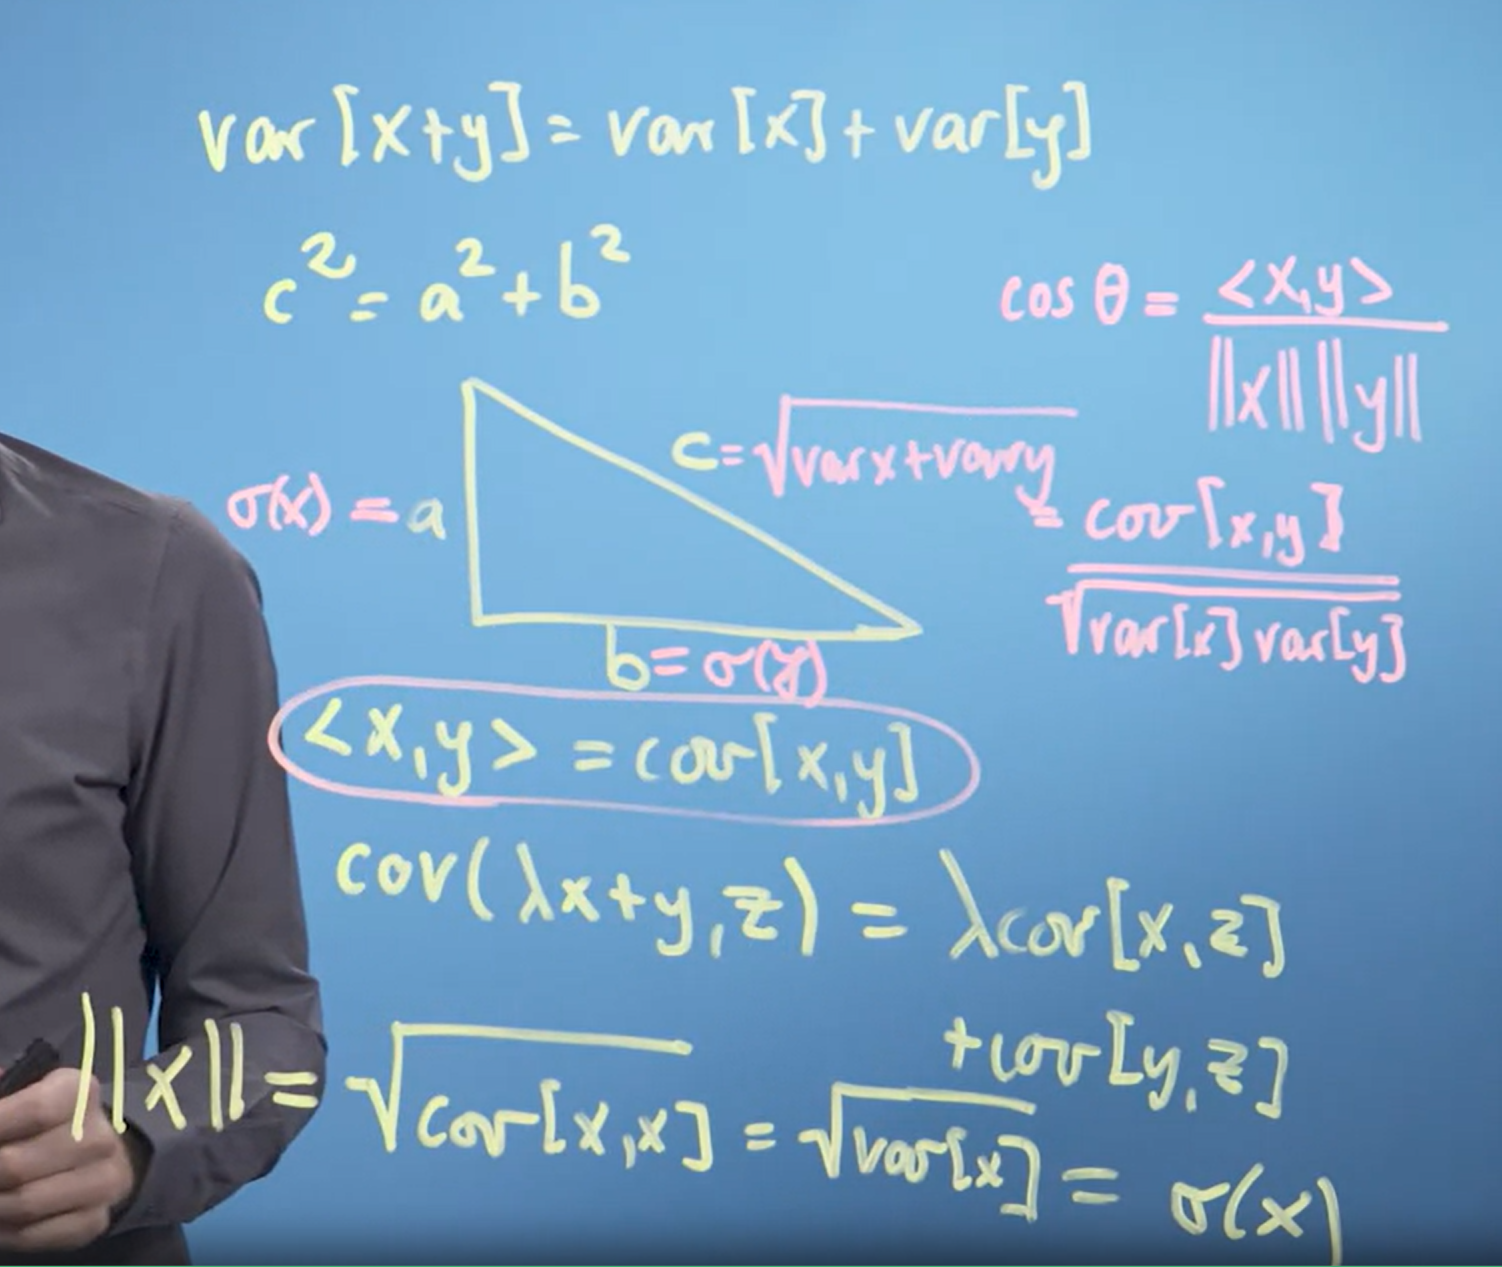 var[x+y] = var[x] + var[y]
c² = a² + b²
cos θ = <x,y> / ||x|| ||y||
c = √(var x + var y)
σ(x) = a
= cov[x,y] / √(var[x] var[y])
b = σ(y)
<x,y> = cov[x,y]
cov(λx+y,z) = λcov[x,z]
+cov[y,z]
||x|| = √cov[x,x] = √var[x] = σ(x)